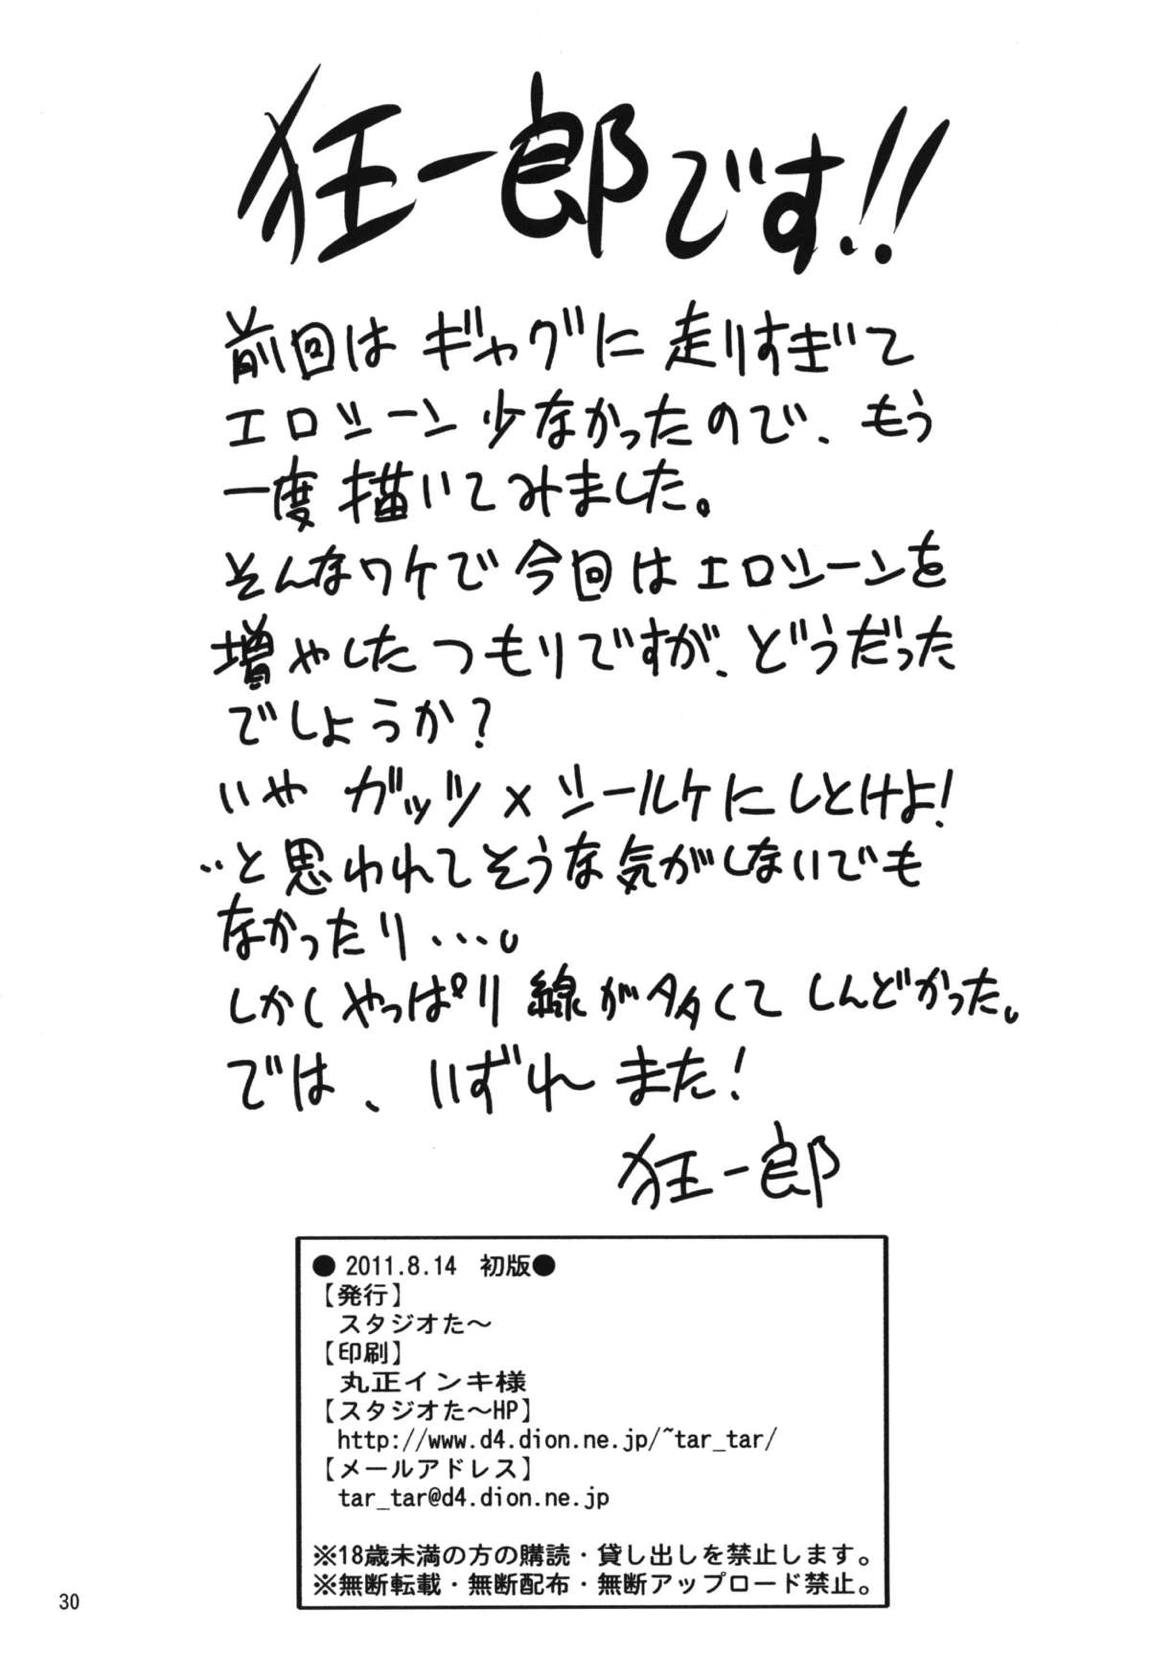 狂一郎です!!
前回は ギャグに 走りすぎて
エロシーン 少なかったので、もう
一度 描いてみました。
そんなワケで 今回は エロシーンを
増やした つもりですが、どうだった
でしょうか?
いや ガッツ×シールケにしとけよ!
‥と 思われてそうな気がしないでも
なかったり・・・。
しかし やっぱり 線が多くて しんどかった。
では、いずれ また!
狂一郎
● 2011.8.14 初版●
【発行】
スタジオた～
【印刷】
丸正インキ様
【スタジオた～HP】
http://www.d4.dion.ne.jp/~tar_tar/
【メールアドレス】
tar_tar@d4.dion.ne.jp
※18歳未満の方の購読・貸し出しを禁止します。
※無断転載・無断配布・無断アップロード禁止。
30